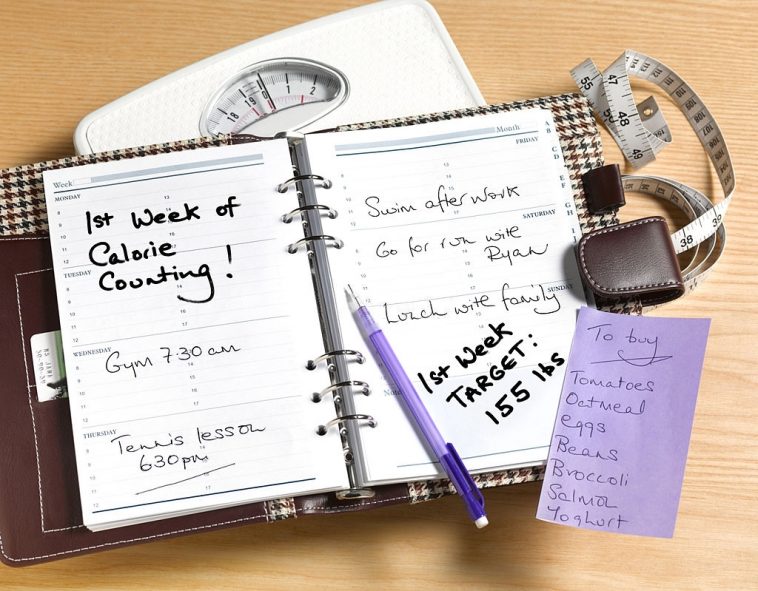 Week
MONDAY
1st Week of
Calorie
Counting!
TUESDAY
WEDNESDAY
Gym 7.30 am
THURSDAY
Tennis lesson
630pm
Month
FRIDAY
Swim after work
SATURDAY
Go for run with
Ryan
SUNDAY
Lunch with family
1st Week
TARGET:
155 lbs
Notes
To buy
Tomatoes
Oatmeal
eggs
Beans
Broccoli
Salmon
Yoghurt
18
19
1
2
55
47
48
49
38